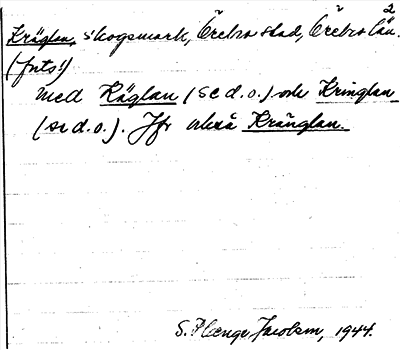 2
Kräglan, skogsmark, Örebro stad, Örebro län.
(forts.)
med Räglan (se d.o.) och Kringlan
(se d.o.). Jfr också Kränglan.
S. Plænge Jacobson, 1944.